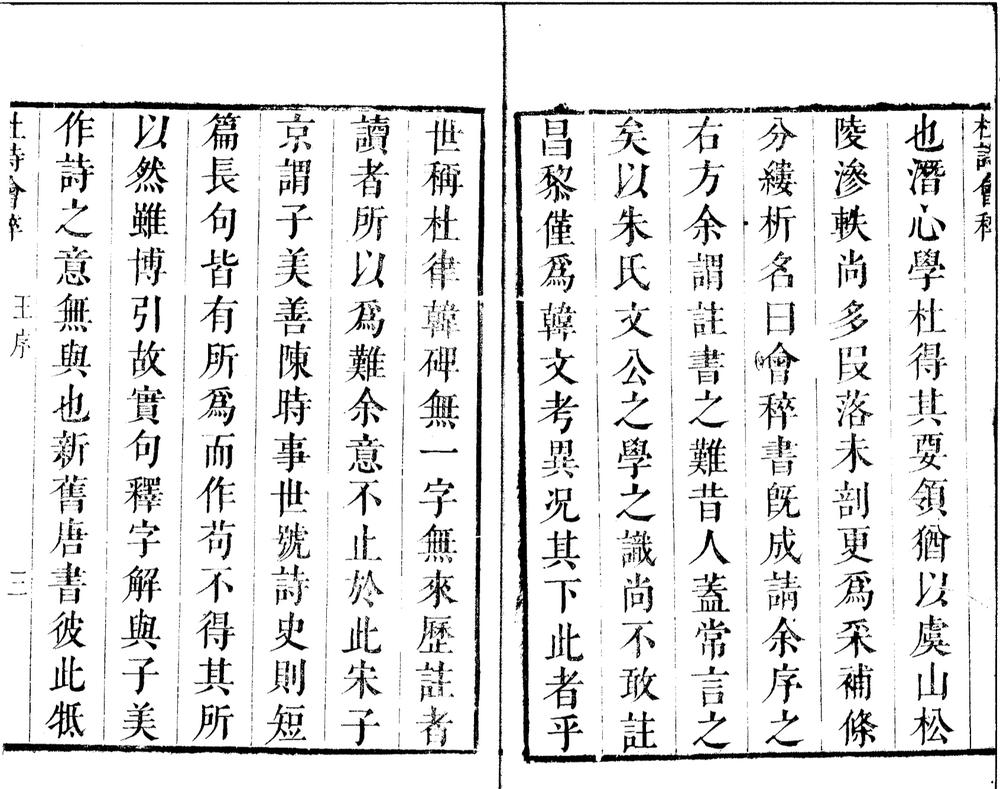 杜詩會稡
也潛心學杜得其要領猶以虞山松
陵滲軼尚多段落未剖更爲采補條
分縷析名曰會稡書旣成請余序之
右方余謂註書之難昔人蓋常言之
矣以朱氏文公之學之識尚不敢註
昌黎僅爲韓文考異况其下此者乎
世稱杜律韓碑無一字無來歷註者
讀者所以爲難余意不止於此宋子
京謂子美善陳時事世號詩史則短
篇長句皆有所爲而作苟不得其所
以然雖博引故實句釋字解與子美
作詩之意無與也新舊唐書彼此牴
杜詩會稡 王序 三